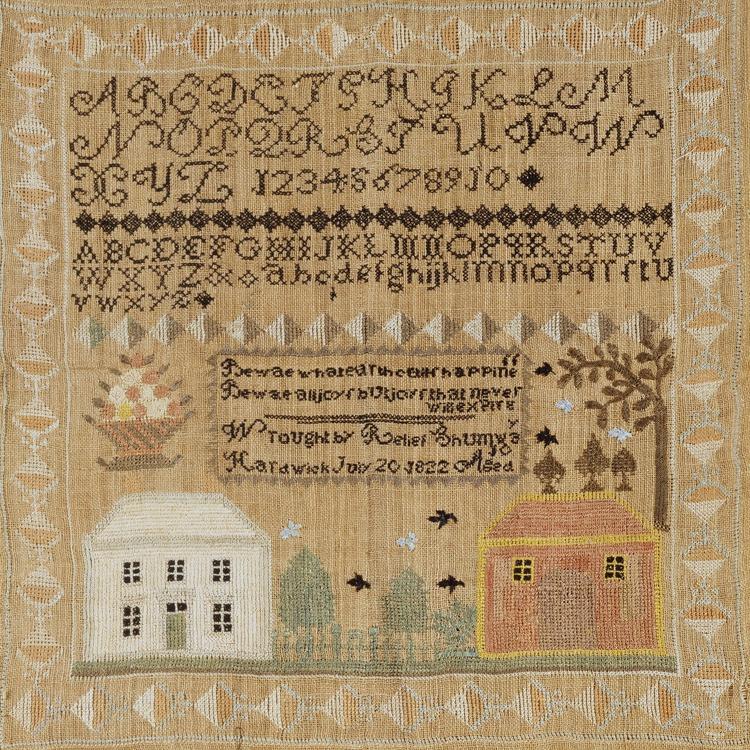 A B C D E F G H I K L M
N O P Q R S T U V W
X Y Z 1 2 3 4 5 6 7 8 9 10
ABCDEFGHIJKLMNOPQRSTUV
WXYZ& abcdefghijklmnopqrſtu
vwxyz
what earth happineſſ
all joys but joys that never
will expire
Wrought by Relief Shumway
Hardwick July 20 1822 Aged